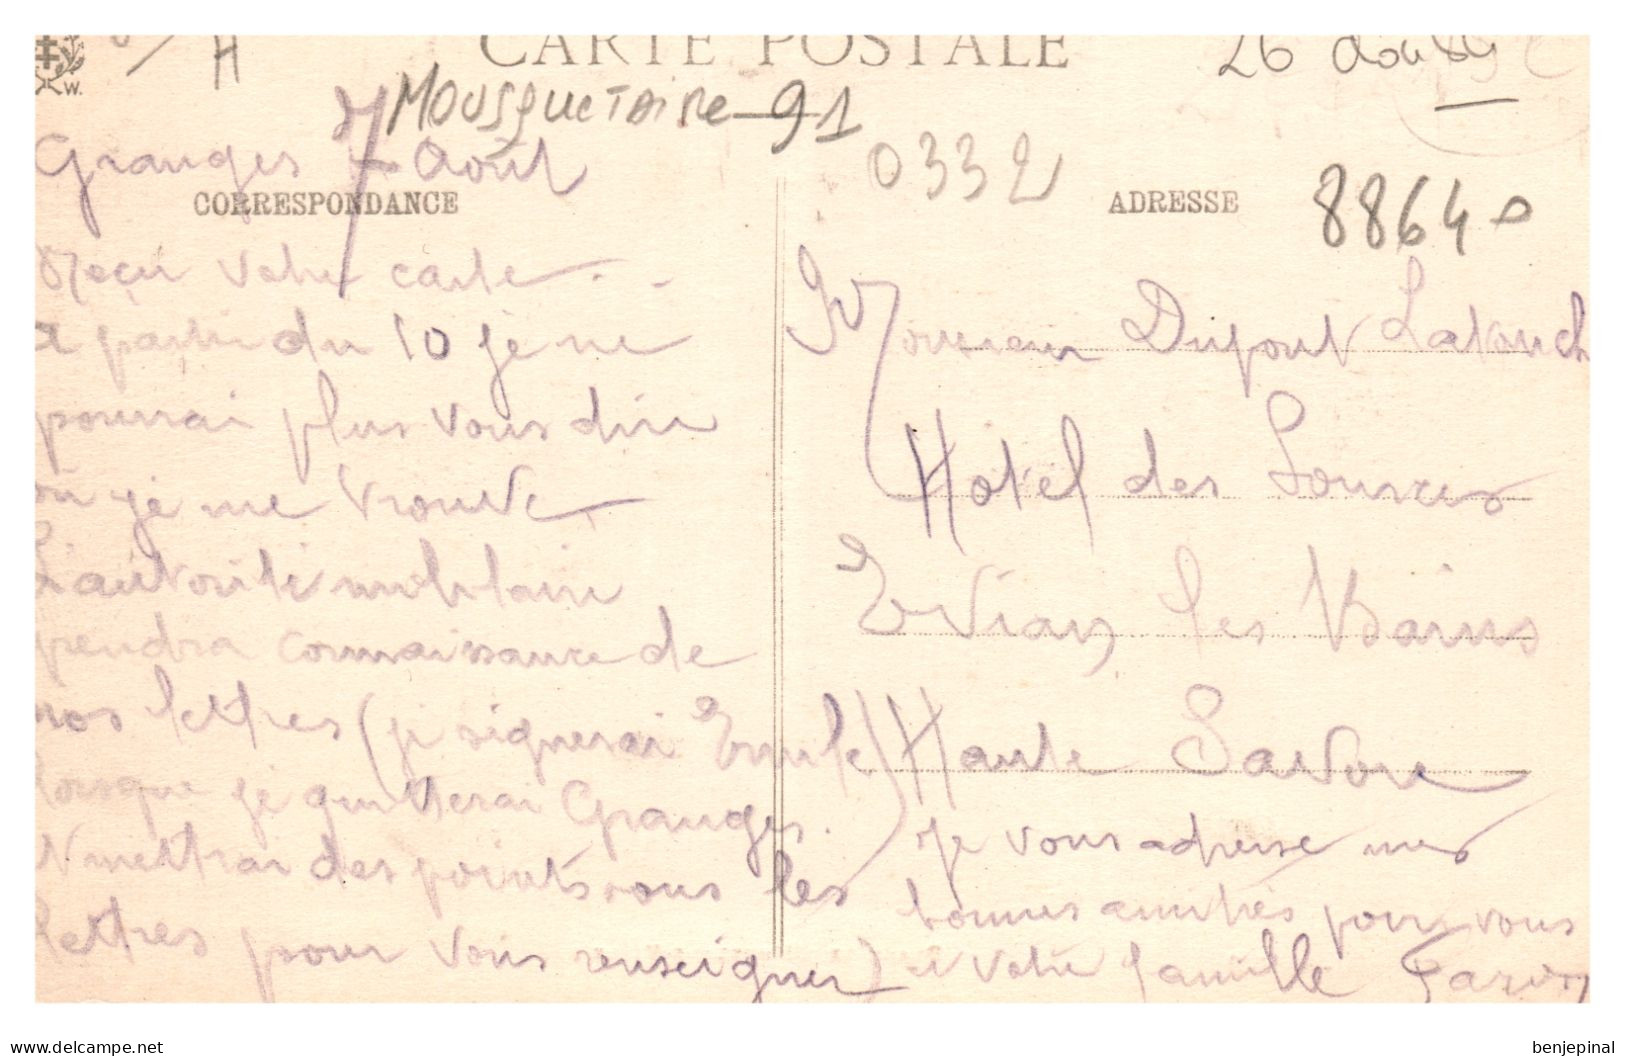 CARTE POSTALE
H
26
MOUSQUETAIRE-91
0332
88640
W.
Granges 7 Août
CORRESPONDANCE
Reçu votre carte
à partir du 10 je ne
pourrai plus vous dire
où je me trouve
L'autorité militaire
prendra connaissance de
nos lettres (je signerai Emile)
lorsque je quitterai Granges.
mettrai des points sous les
lettres pour vous renseigner)
ADRESSE
Monsieur Dupont Latouch
Hotel des Sources
Evian les Bains
Haute Savoie
Je vous adresse mes
bonnes amitiés pour vous
et votre famille
benjepinal